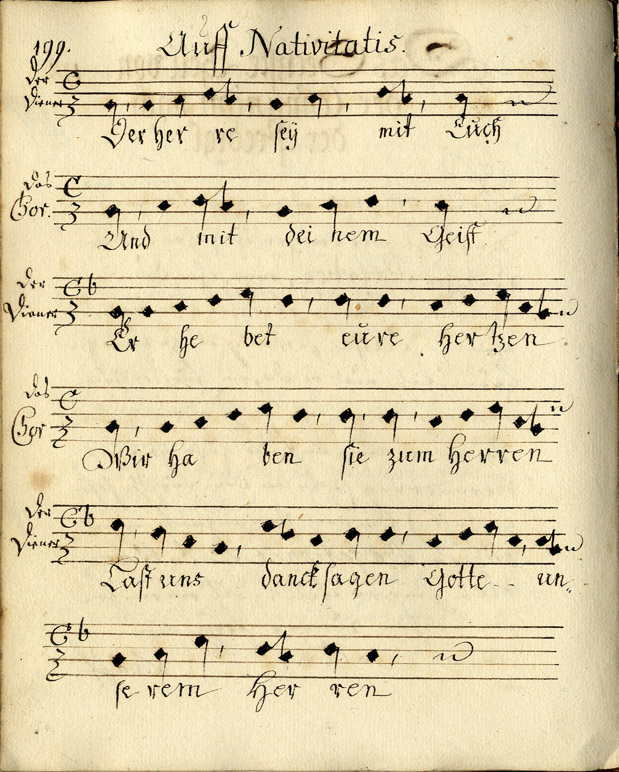 199. Auff Nativitatis.
Der
Diener
Der her re sey mit Euch
Das
Chor.
Und mit dei nem Geist
der
Diener
Er he bet eure her tzen
das
Chor
Wir ha ben sie zum herren
der
Diener
Last uns danck sagen Gotte un-
se rem her ren